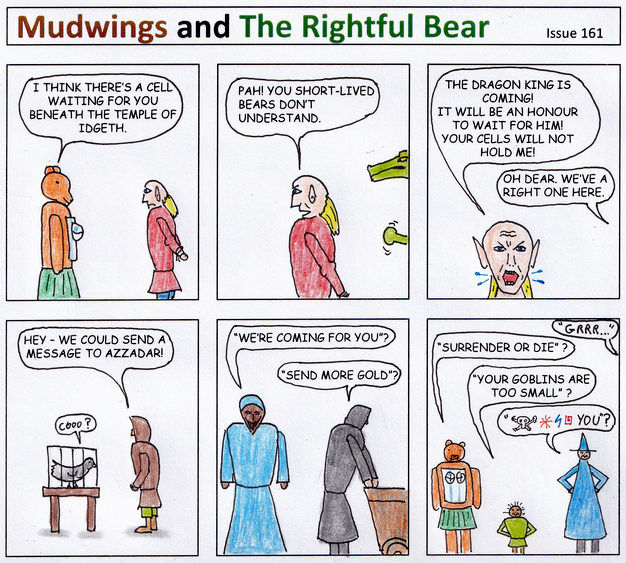 Mudwings and The Rightful Bear
Issue 161
I THINK THERE'S A CELL
WAITING FOR YOU
BENEATH THE TEMPLE OF
IDGETH.
PAH! YOU SHORT-LIVED
BEARS DON'T
UNDERSTAND.
THE DRAGON KING IS
COMING!
IT WILL BE AN HONOUR
TO WAIT FOR HIM!
YOUR CELLS WILL NOT
HOLD ME!
OH DEAR. WE'VE A
RIGHT ONE HERE.
HEY - WE COULD SEND A
MESSAGE TO AZZADAR!
COOO?
"WE'RE COMING FOR YOU"?
"SEND MORE GOLD"?
"GRRR..."
"SURRENDER OR DIE" ?
"YOUR GOBLINS ARE
TOO SMALL" ?
" YOU"?